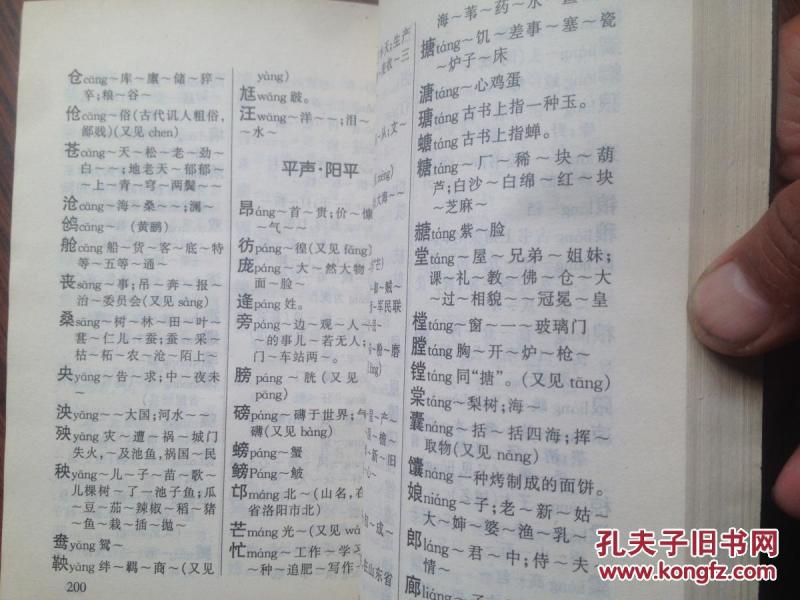 仓cāng～库～廪～储～猝～
卒;粮～谷～
伧cāng～俗(古代讥人粗俗,
鄙贱)(又见chen)
苍cāng～天～松～老～劲～
白～～;地老天～郁郁～
～上～青～穹～两鬓～～
沧cāng～海～桑～～;澜～
鸧cāng～ (黄鹂)
舱cāng船～货～客～底～特
等～五等～通～
丧sāng～事;吊～奔～报～
治～委员会(又见sàng)
桑sāng～树～林～田～叶～
葚～仁儿～蚕;蚕～采～
枯～柘～农～沧～陌上～
央yāng～告～求;中～夜未
～
泱yāng～～大国;河水～～
殃yāng 灾～遭～祸～城门
失火,～及池鱼,祸国～民
秧yāng～儿～子～苗～歌～
儿棵树～了一池子鱼;瓜
～豆～茄～辣椒～稻～猪
～鱼～栽～插～抛～
鸯yāng 鸳～
鞅yāng 绊～羁～商～(又见
200
yàng)
尪wāng 跛。
汪wāng～洋～～;泪～
～水～
平声·阳平
昂áng～首～贵;价～慷
～气～～
彷páng～徨(又见fǎng)
庞páng～大～然大物
面～脸～
逄páng 姓。
旁páng～边～观～人～
～的事儿～若无人;
门～车站两～。
膀páng～胱(又见
pāng)
磅páng～礴于世界;气
礴(又见bàng)
螃páng～蟹
鳑Páng～鲏
邙máng 北～(山名,在
省洛阳市北)
芒máng 光～(又见wá
忙máng～工作～学习
～种～追肥～写作
海～苇～药～水～
搪táng～饥～差事～塞～瓷
～炉子～床
溏táng～心鸡蛋
瑭táng 古书上指一种玉。
螗táng 古书上指蝉。
糖táng～厂～稀～块～葫
芦;白沙～白绵～红～块
～芝麻～
赯táng 紫～脸
堂táng～屋～兄弟～姐妹;
课～礼～教～佛～仓～大
～过～相貌～～冠冕～皇
樘táng～窗～一～玻璃门
膛táng 胸～开～炉～枪～
镗táng 同“搪”。(又见tāng)
棠táng～梨树;海～
囊náng～括～括四海;挥～
取物(又见nāng)
馕náng 一种烤制成的面饼。
娘niáng～子;老～新～姑～
大～婶～婆～渔～乳～
郎láng～君～中;侍～夫～
情～
廊
孔夫子旧书网
www.kongfz.com